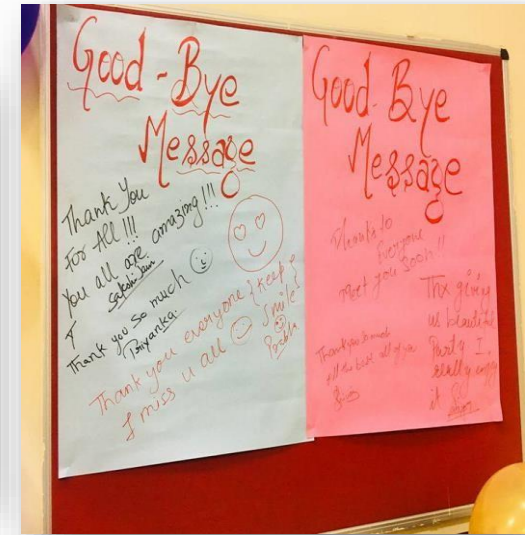 Good-Bye
Message
Thank You
For All!!!
You all are amazing!!!
Sakshi Jain
&
Thank you so much
Priyanka.
Thank you everyone {keep }
I miss u all Smile
Good-Bye
Message
Thanks to
Everyone
meet you soon!!
Thankyou so much
all the best all of you
Thx giving
us beautiful
Party I
really enjoy
it